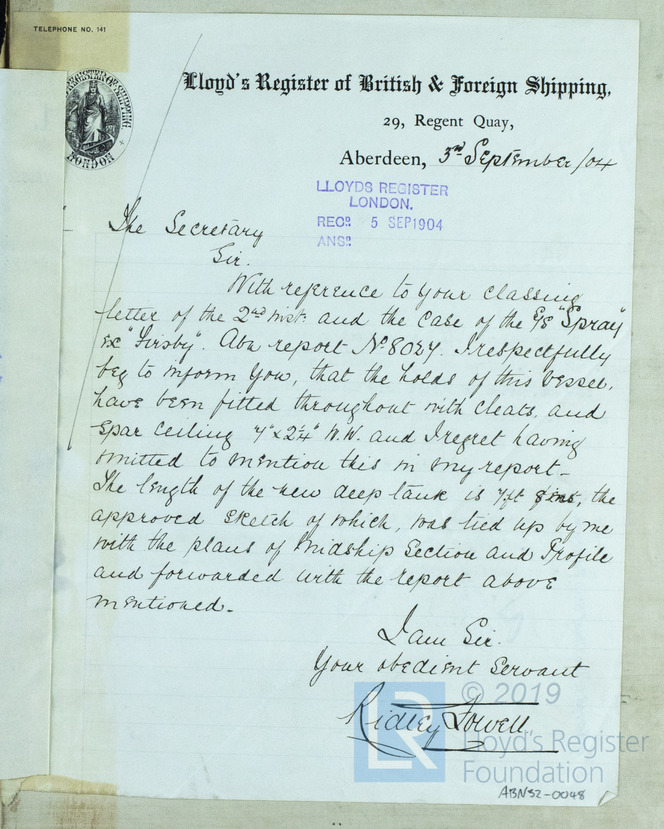 TELEPHONE NO. 141
REGISTER OF SHIPPING
LONDON
Lloyd's Register of British & Foreign Shipping,
29, Regent Quay,
Aberdeen, 3rd September /04
LLOYDS REGISTER
LONDON.
RECD 5 SEP 1904
ANSD
The Secretary
Sir.
With reference to your classing
letter of the 2nd inst: and the case of the "Spray"
ex "Firsby". Abn report No 8027. I respectfully
beg to inform you, that the holds of this vessel,
have been fitted throughout with cleats and
spar ceiling 7" x 2¼" W.W. and I regret having
omitted to mention this in my report -
The length of the new deep tank is 7ft 8ins, the
approved sketch of which, was tied up by me
with the plans of Midship Section and Profile
and forwarded with the report above
mentioned -
I am Sir.
Your obedient Servant
Ridley Fowell
LR © 2019
Lloyd's Register
Foundation
ABN52-0048